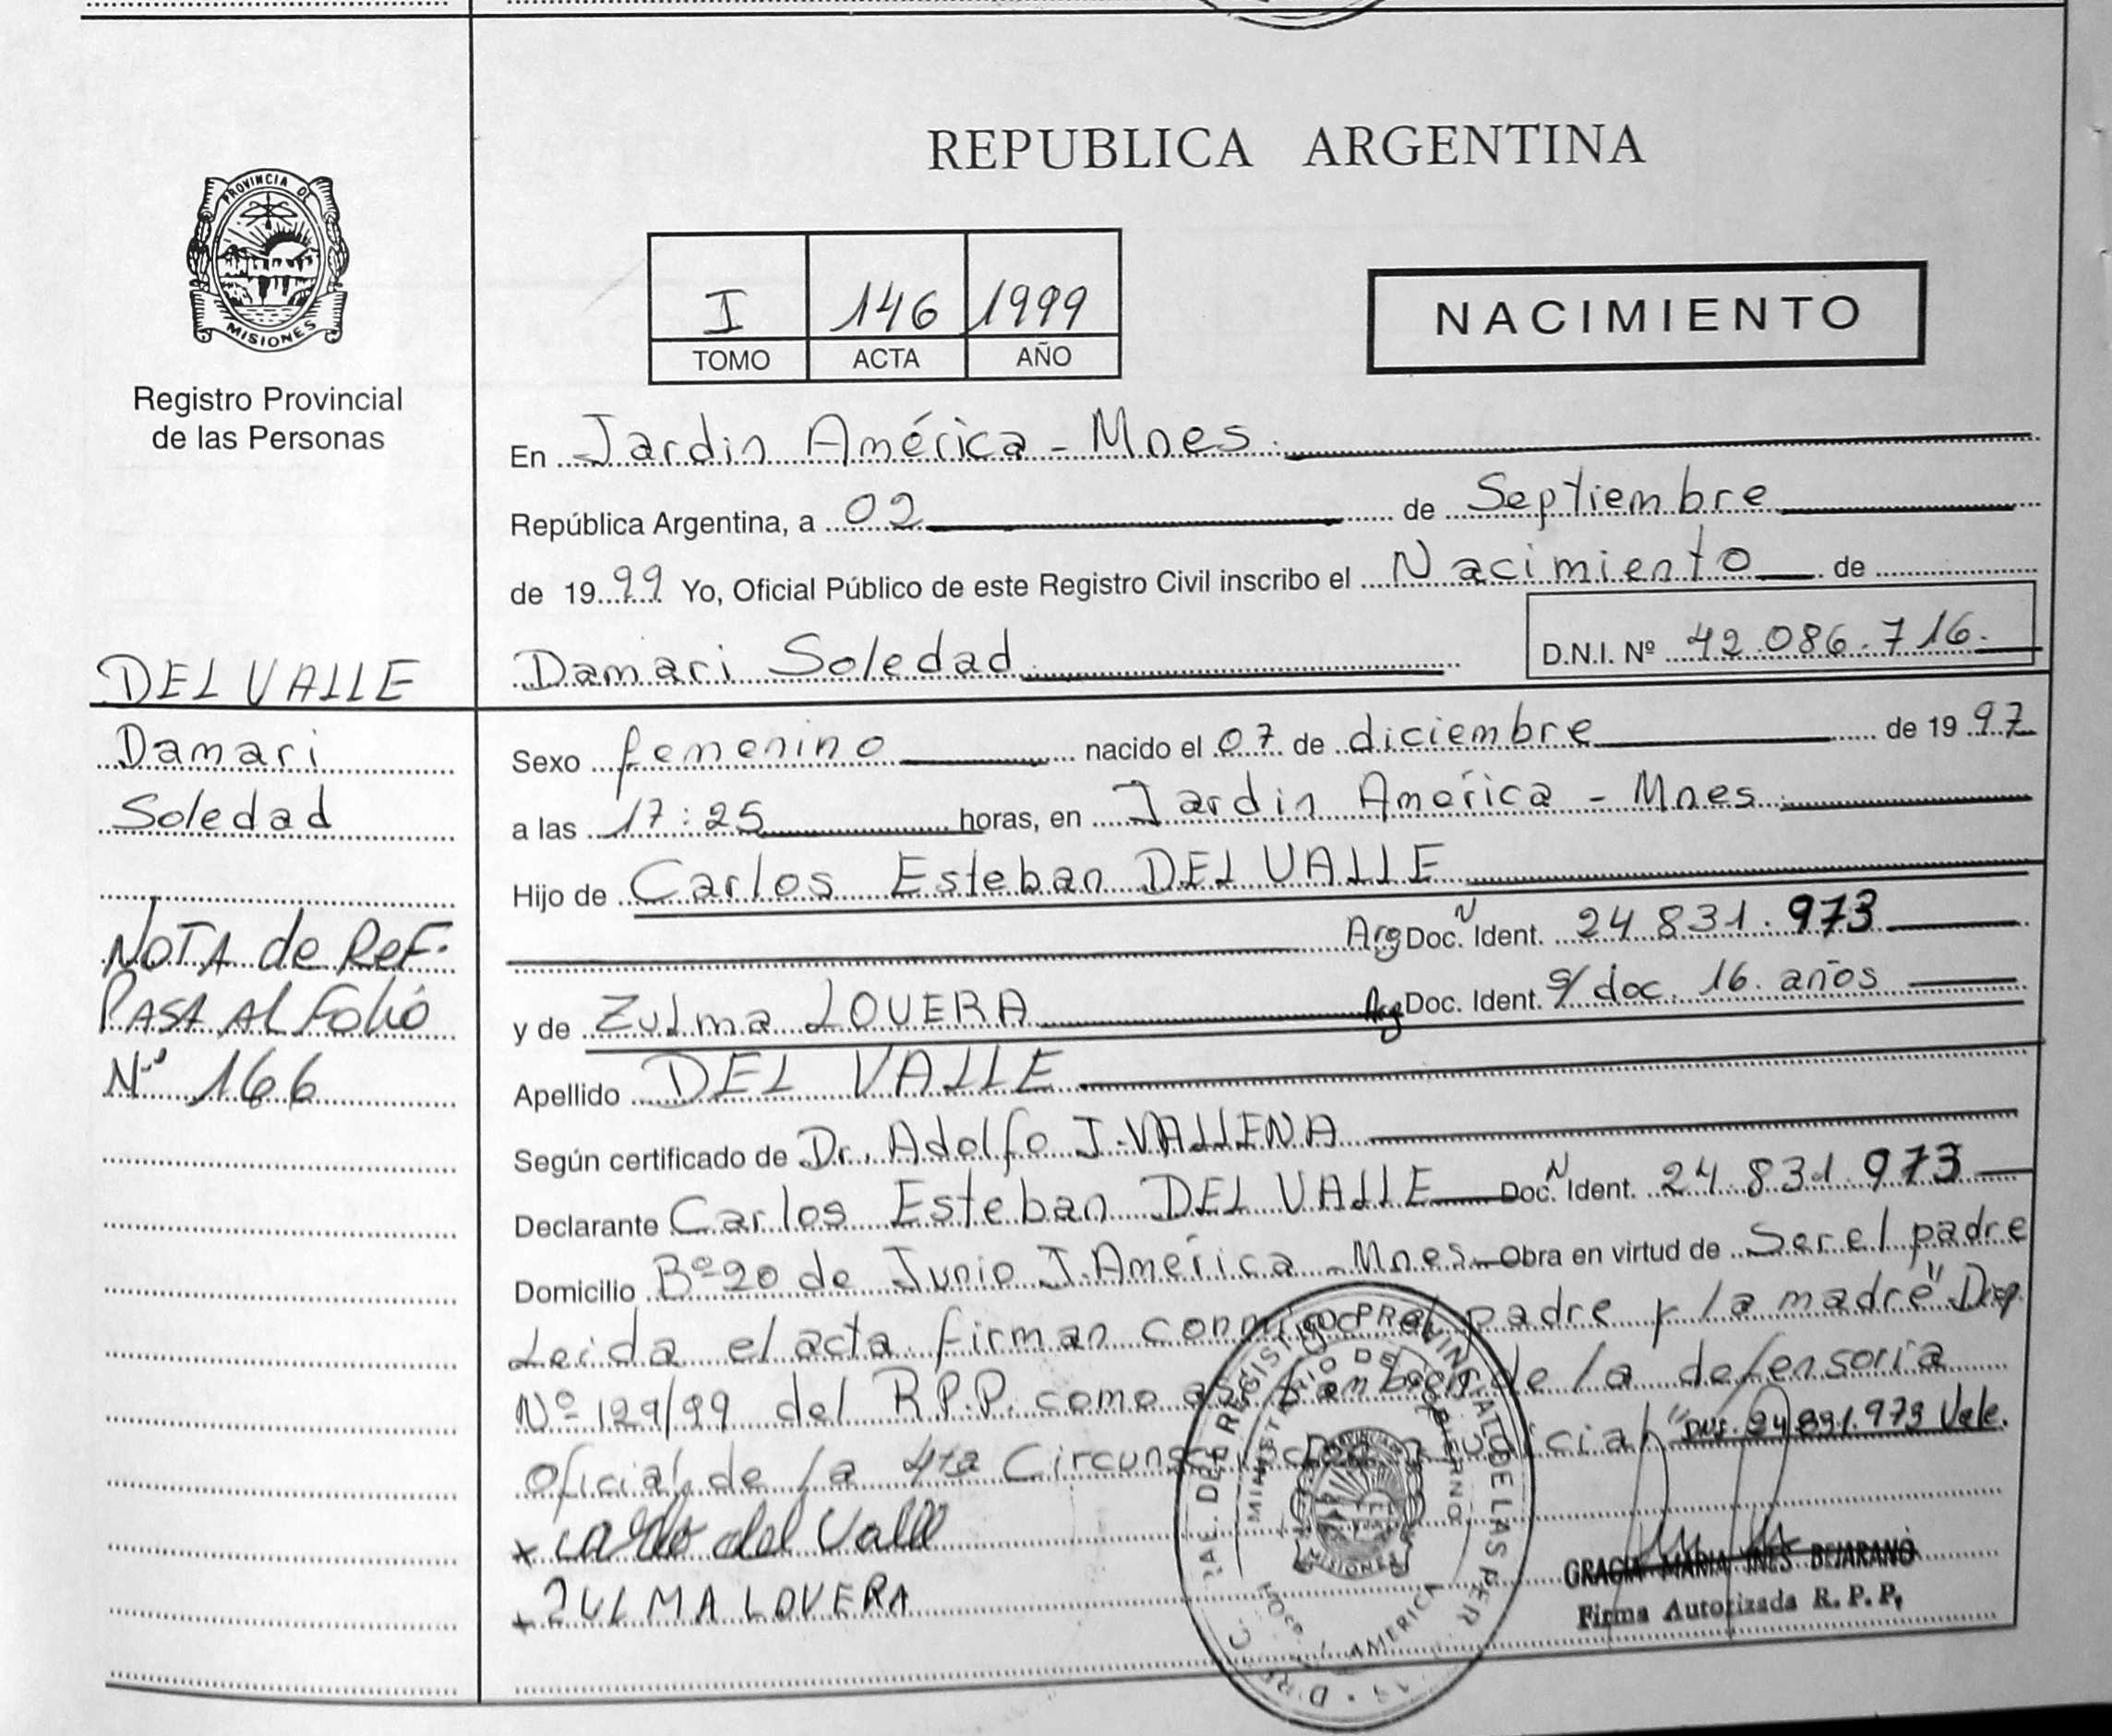 REPUBLICA ARGENTINA
PROVINCIA DE
MISIONES
Registro Provincial
de las Personas
I 146 1999
TOMO ACTA AÑO
NACIMIENTO
En Jardin América - Mnes.
República Argentina, a 02 de Septiembre
de 1999 Yo, Oficial Público de este Registro Civil inscribo el Nacimiento de
Damari Soledad D.N.I. Nº 42.086.716.
DEL VALLE
Damari
Soledad
NOTA de ReF.
PASA AL Folio
Nº 166
Sexo femenino nacido el 07 de diciembre de 1997
a las 17:25 horas, en Jardin América - Mnes.
Hijo de Carlos Esteban DEL VALLE
Arg Doc. N Ident. 24.831.973
y de Zulma LOVERA Arg Doc. Ident. s/doc. 16. años
Apellido DEL VALLE
Según certificado de Dr. Adolfo J. VALLENA
Declarante Carlos Esteban DEL VALLE Doc. N Ident. 24.831.973
Domicilio Bº 20 de Junio J. América - Mnes. Obra en virtud de Ser el padre
Leida el acta firman conmigo el padre y la madre" Disp.
Nº 129/99 del R.P.P. como así también de la defensoria
oficial de la 4ta Circunscripción Judicial" DNI. 24.831.973 Vale.
x Carlo del Valle
x ZULMA LOVERA
GRACIA MARIA INES BEJARANO
Firma Autorizada R. P. P.
MINISTERIO DE GOBIERNO
MISIONES
AMERICA